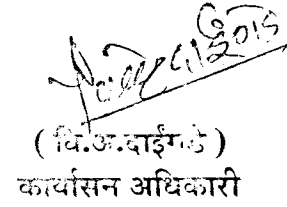 ( वि.अ.दाईंगडे )
कार्यासन अधिकारी